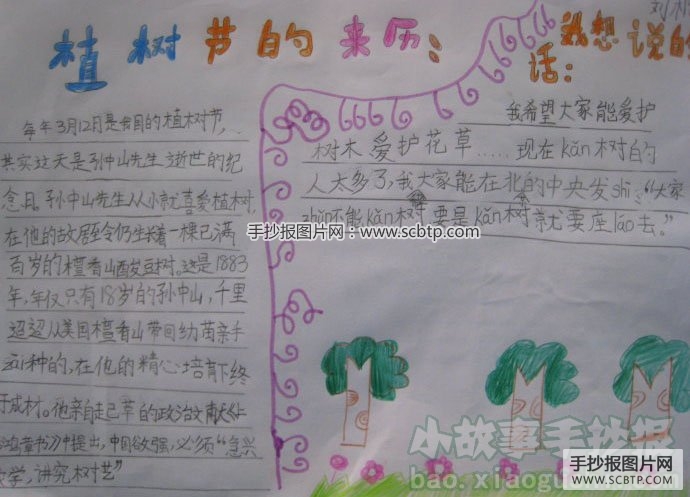 植树节的来历：
我想说的
话：
每年3月12日是我国的植树节,
其实这天是孙中山先生逝世的纪
念日。孙中山先生从小就喜爱植树,
在他的故居至今仍生长着一棵已满
百岁的檀香山酸豆树。这是1883
年,年仅只有18岁的孙中山,千里
迢迢从美国檀香山带回幼苗亲手
种的,在他的精心培育下终
于成材。他亲自起草的政治文献《上
李鸿章书》中提出,中国欲强,必须“急兴
农学,讲究树艺”
我希望大家能爱护
树木爱护花草……现在kǎn树的
人太多了,我大家能在北的中央发shì:“大家
不能kǎn树,要是kǎn树就要座láo去。”
手抄报图片网：www.scbtp.com
小故事手抄报
bao.xiaogu
手抄报图片网
SCBTP.COM